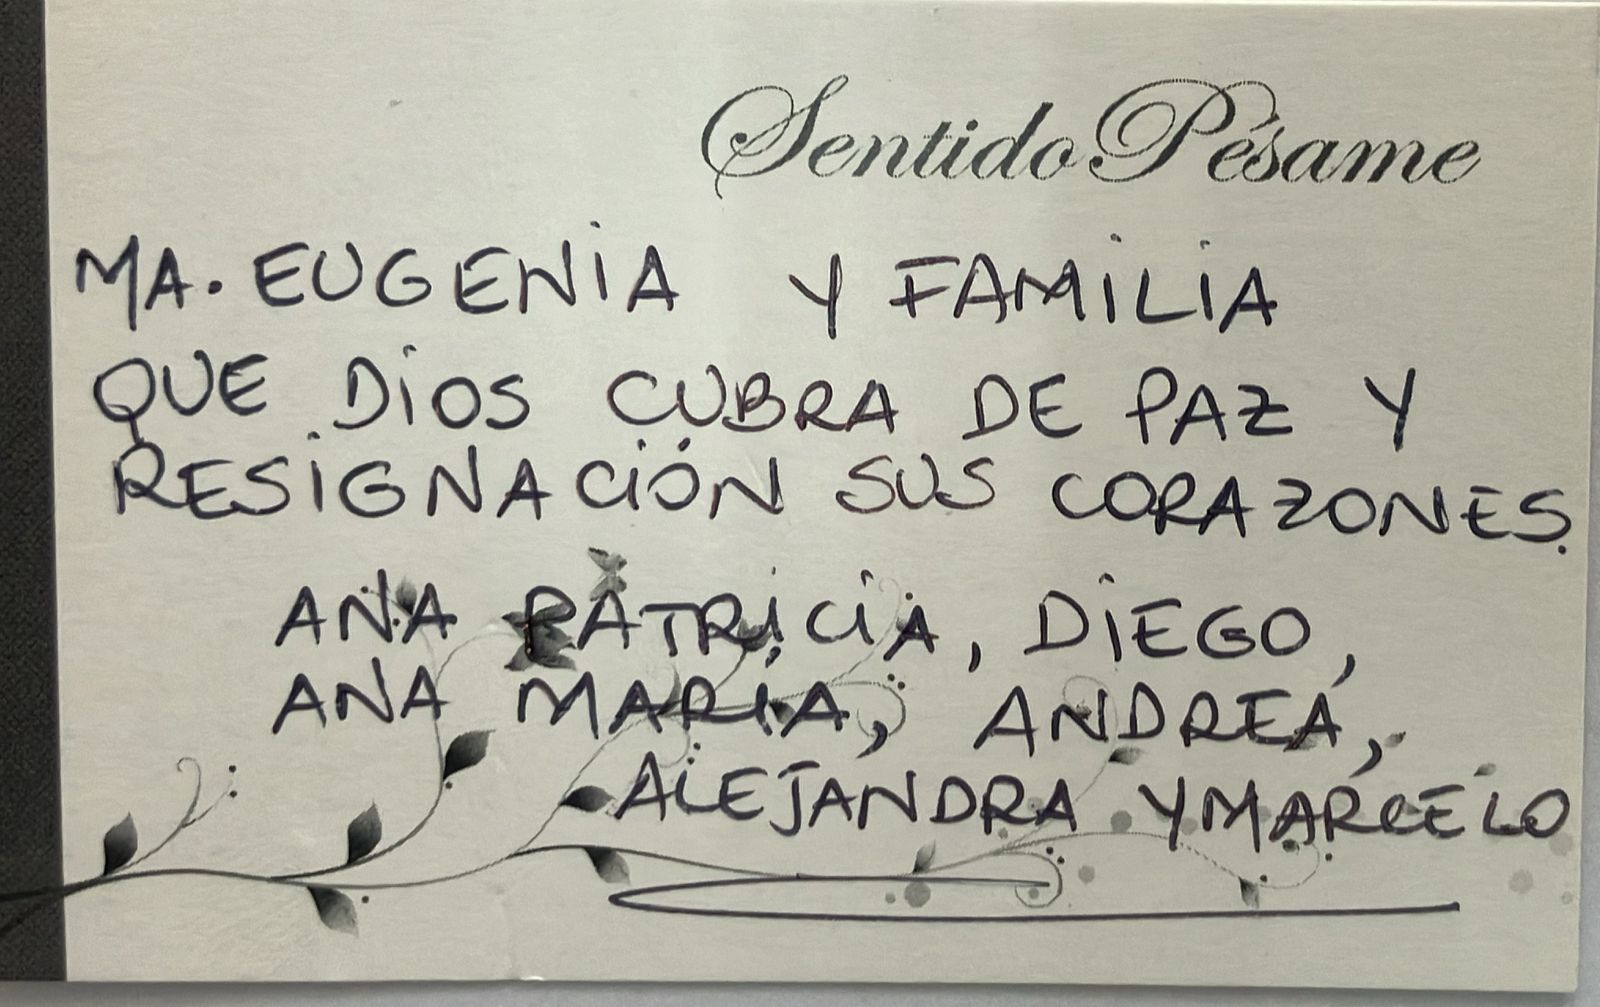 Sentido Pésame
MA. EUGENIA Y FAMILIA
QUE DIOS CUBRA DE PAZ Y
RESIGNACIÓN SUS CORAZONES.
ANA PATRICIA, DIEGO,
ANA MARÍA, ANDREA,
ALEJANDRA Y MARCELO